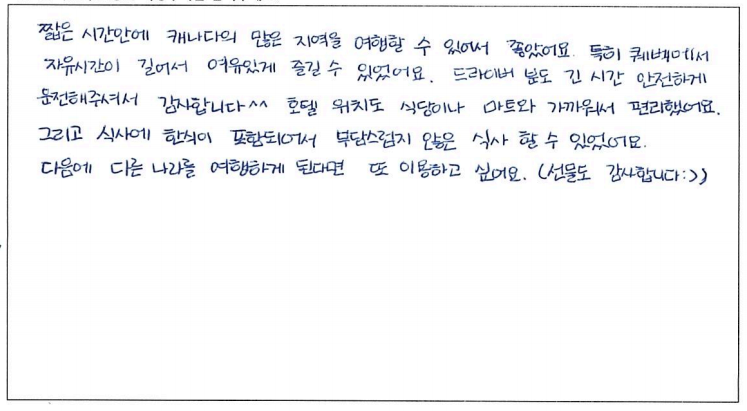 짧은 시간안에 캐나다의 많은 지역을 여행할 수 있어서 좋았어요. 특히 퀘백에서
자유시간이 길어서 여유있게 즐길 수 있었어요. 드라이버 분도 긴 시간 안전하게
운전해주셔서 감사합니다^^ 호텔 위치도 식당이나 마트와 가까워서 편리했어요.
그리고 식사에 한식이 포함되어서 부담스럽지 않은 식사 할 수 있었어요.
다음에 다른 나라를 여행하게 된다면 또 이용하고 싶어요. (선물도 감사합니다:))